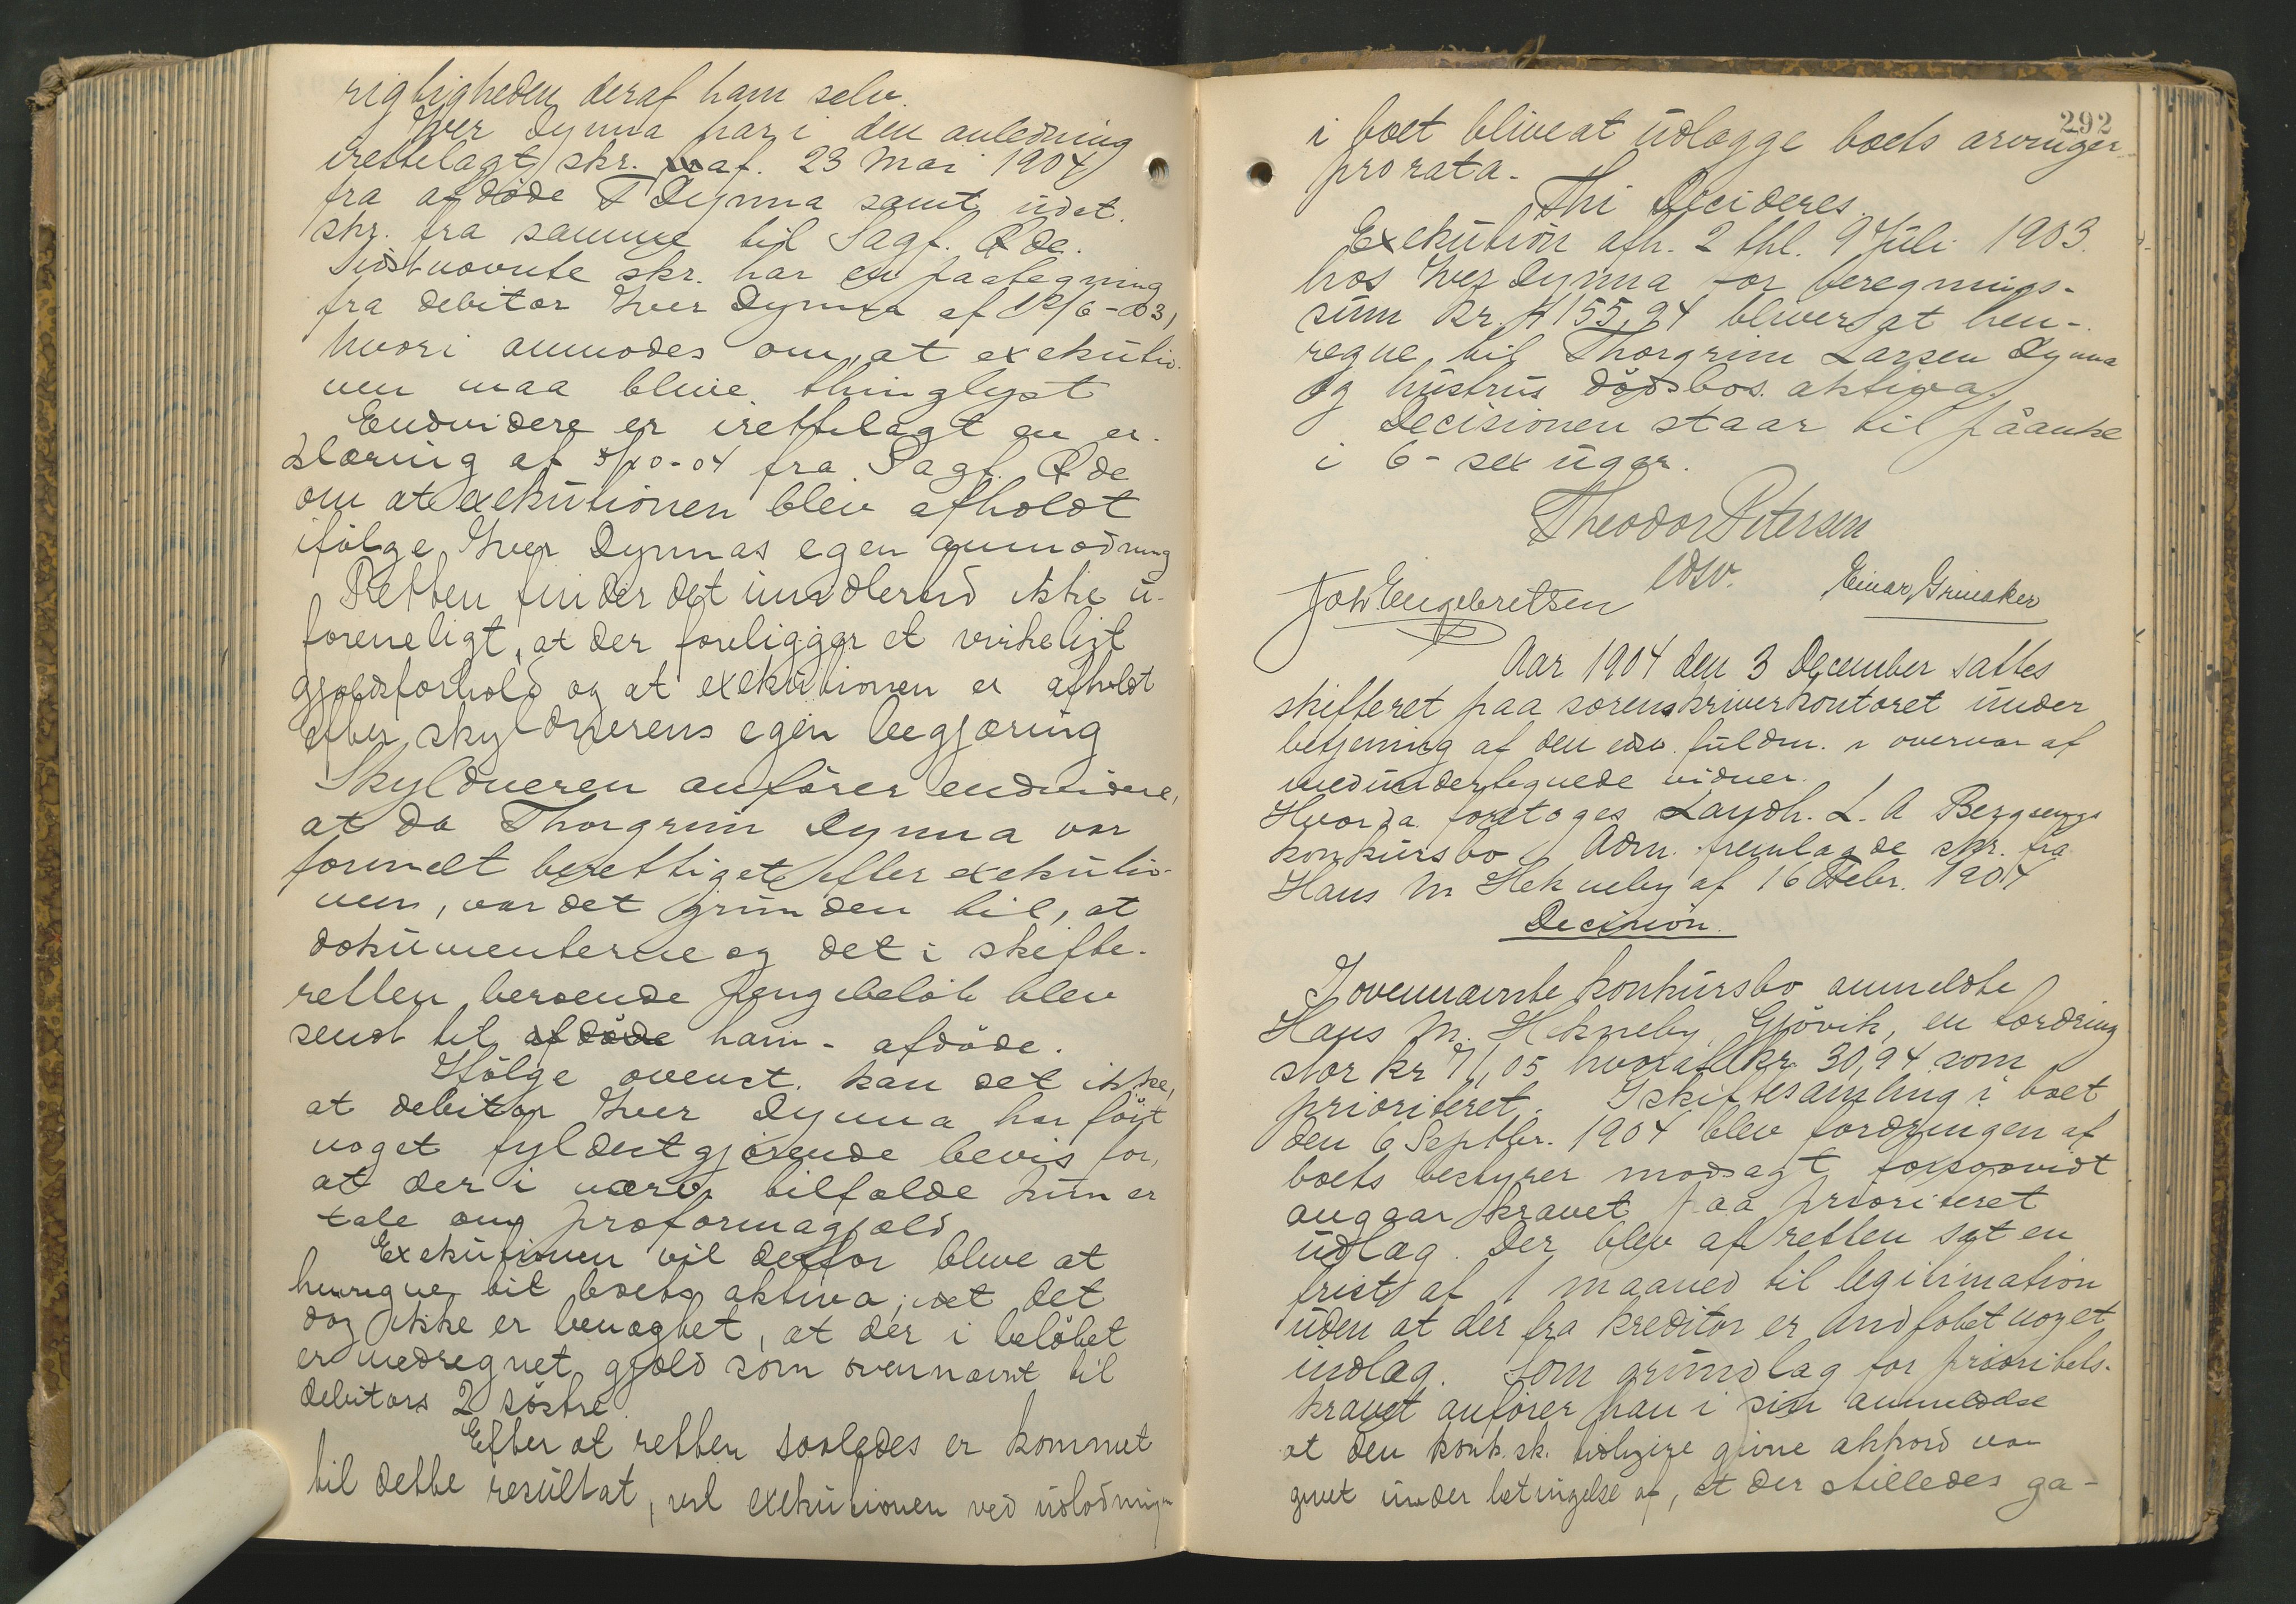 rigtigheden deraf ham selv.
Iver Dynna har i den anledning
irettelagt skr. af. 23 Mai 1904
fra afdöde T Dynna samt udat.
skr. fra samme til Sagf. Ode.
Sidstnævnte skr. har en paategning
fra debitor Iver Dynna af 18/6-03,
hvori anmodes om, at exekutio-
nen maa blive thinglyst
Endvidere er irettelagt en er-
klæring af 5/10-04 fra Sagf. Ode
om at exekutionen blev afholdt
ifölge Iver Dynnas egen anmodning
Retten finder det imidlertid ikke u-
foreneligt, at der foreligger et virkeligt
gjældsforhold og at exekutionen er afholdt
efter skyldnerens egen begjæring
Skyldneren anförer endvidere,
at da Thorgrim Dynna var
formelt berettiget efter exekutio-
nen, var det grunden til, at
dokumenterne og det i skifte-
retten beroende pengebelöb blev
sendt til afdöde ham - afdöde.
Ifölge ovenst. kan det ikke,
at debitor Iver Dynna har fört
noget fyldestgjörende bevis for,
at der i nærv. tilfælde kun er
tale om proformagjæld
Exekutionen vil derfor blive at
henregne til boets aktiva, idet det
dog ikke er benægtet, at der i belöbet
er medregnet gjæld som ovennævnt til
debitors 2 söstre.
Efter at retten saaledes er kommet
til dette resultat, vil exekutionen ved udlodningen
292
i boet blive at udlægge boets arvinger
prorata.
Thi Decideres.
Exekution afh. 2 thl. 9 Juli 1903
hos Iver Dynna for beregnings-
sum Kr. 4155,94 bliver at hen-
regne til Thorgrim Larsen Dynna
og hustrus dödsbos aktiva.
Decisionen staar til påanke
i 6 - sex uger.
Theodor Petersen
edsv.
Joh Engebretsen
Einar Grinaker
Aar 1904 den 3 December sattes
skifteret paa sorenskriverkontoret under
betjening af den edsv. fuldm. i overvær af
medundertegnede vidner.
Hvorda foretoges Landh. L. A Bergsengs
konkursbo. Adm. fremlagde skr. fra
Hans M Hekneby af 16 Febr. 1904
Decision.
I ovennævnte konkursbo anmeldte
Hans M. Hekneby, Gjövik, en fordring
stor kr 71,05 hvoraf kr 30,94 som
prioriteret. I skiftesamling i boet
den 6 Septbr. 1904 blev fordringen af
boets bestyrer modsagt forsaavidt
angaar kravet paa prioriteret
udlæg. Der blev af retten sat en
frist af 1 maaned til legitimation
uden at der fra kreditor er indlobet noget
indlæg. Som grundlag for prioritets-
kravet anförer han i sin anmeldelse
at den konk. sk. tidligere givne akkord var
givet under betingelse af, at der stilledes ga-